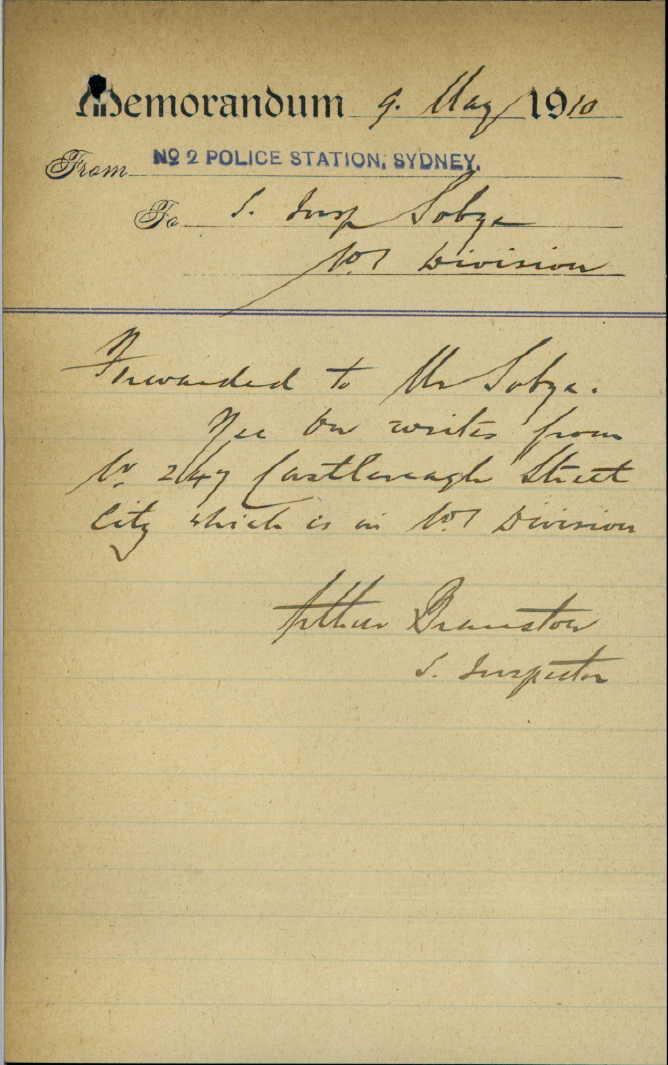 Memorandum 9. May 1910
From No 2 POLICE STATION, SYDNEY.
To S. Insp Sobye
No 1 Division
Forwarded to Mr Sobye.
writes from
No 247 Castlereagh Street
City which is in No 1 Division
Arthur Branston
S. Inspector